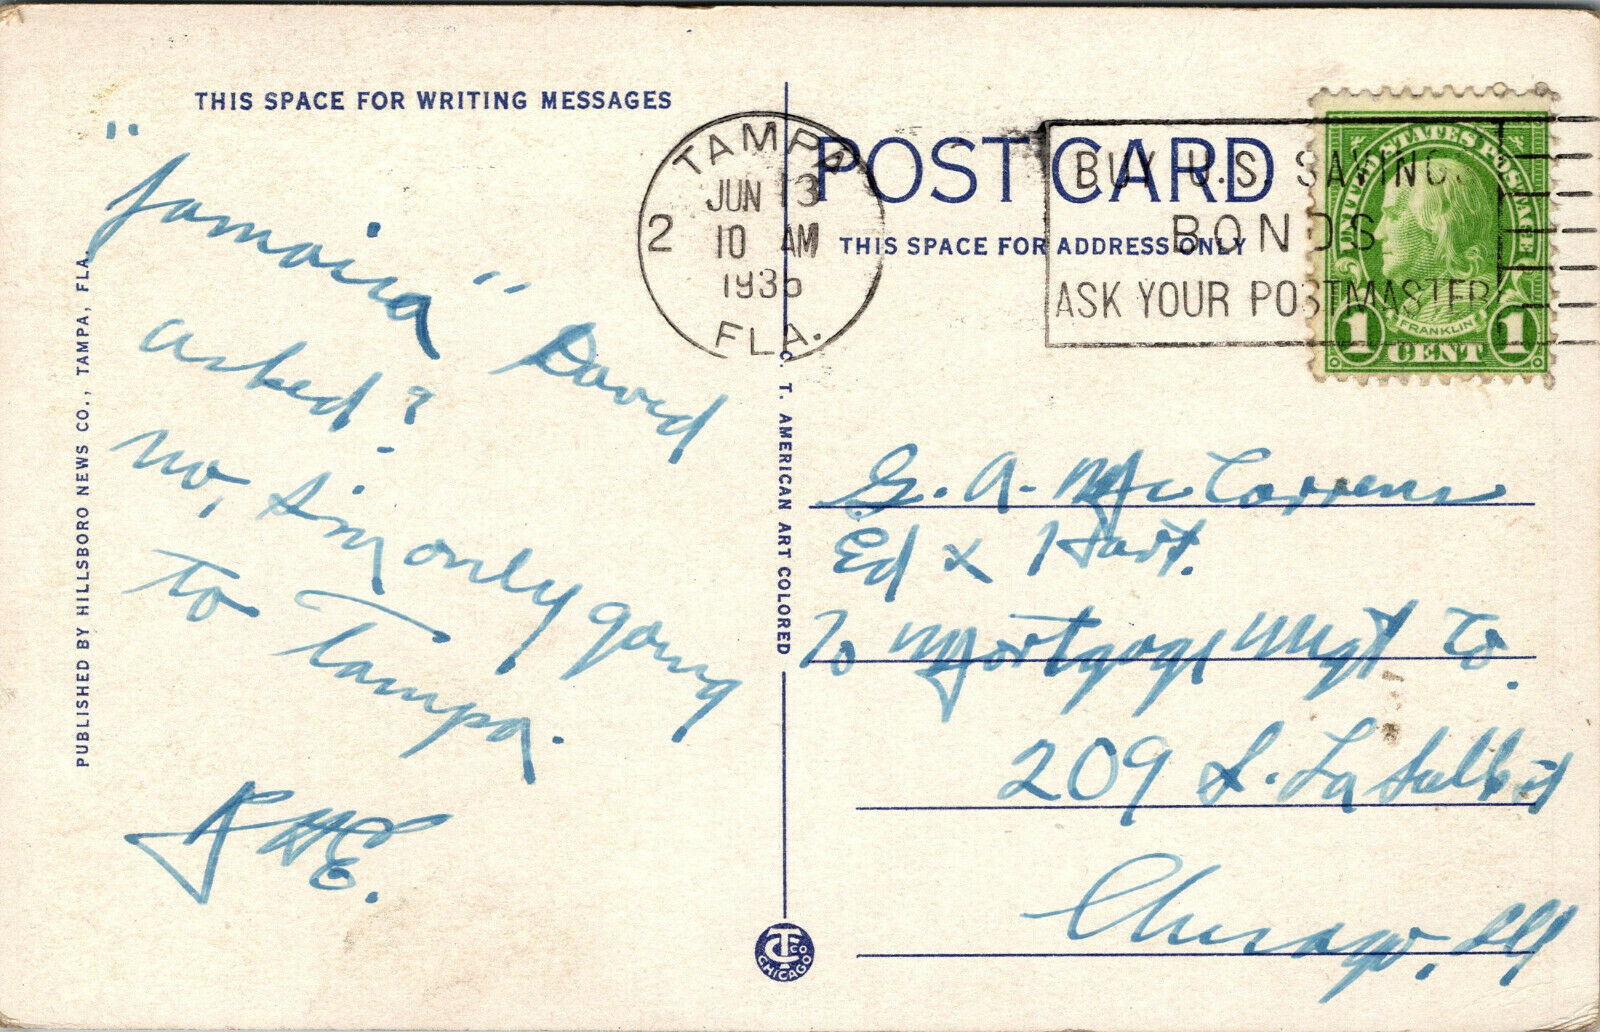 THIS SPACE FOR WRITING MESSAGES
"Jamaica" David
asked?
no, I'm only going
to Tampa.
HE.
PUBLISHED BY HILLSBORO NEWS CO., TAMPA, FLA.
C. T. AMERICAN ART COLORED
CT CO
CHICAGO
TAMPA
JUN 13
2 10 AM
1936
FLA.
POST CARD
THIS SPACE FOR ADDRESS ONLY
BUY U.S. SAVINGS
BONDS
ASK YOUR POSTMASTER
UNITED STATES POSTAGE
FRANKLIN
1 CENT 1
G. A. McCorrens
Ed Hart.
Mortgage Mgt Co.
209 S. La Salle St
Chicago, Ill